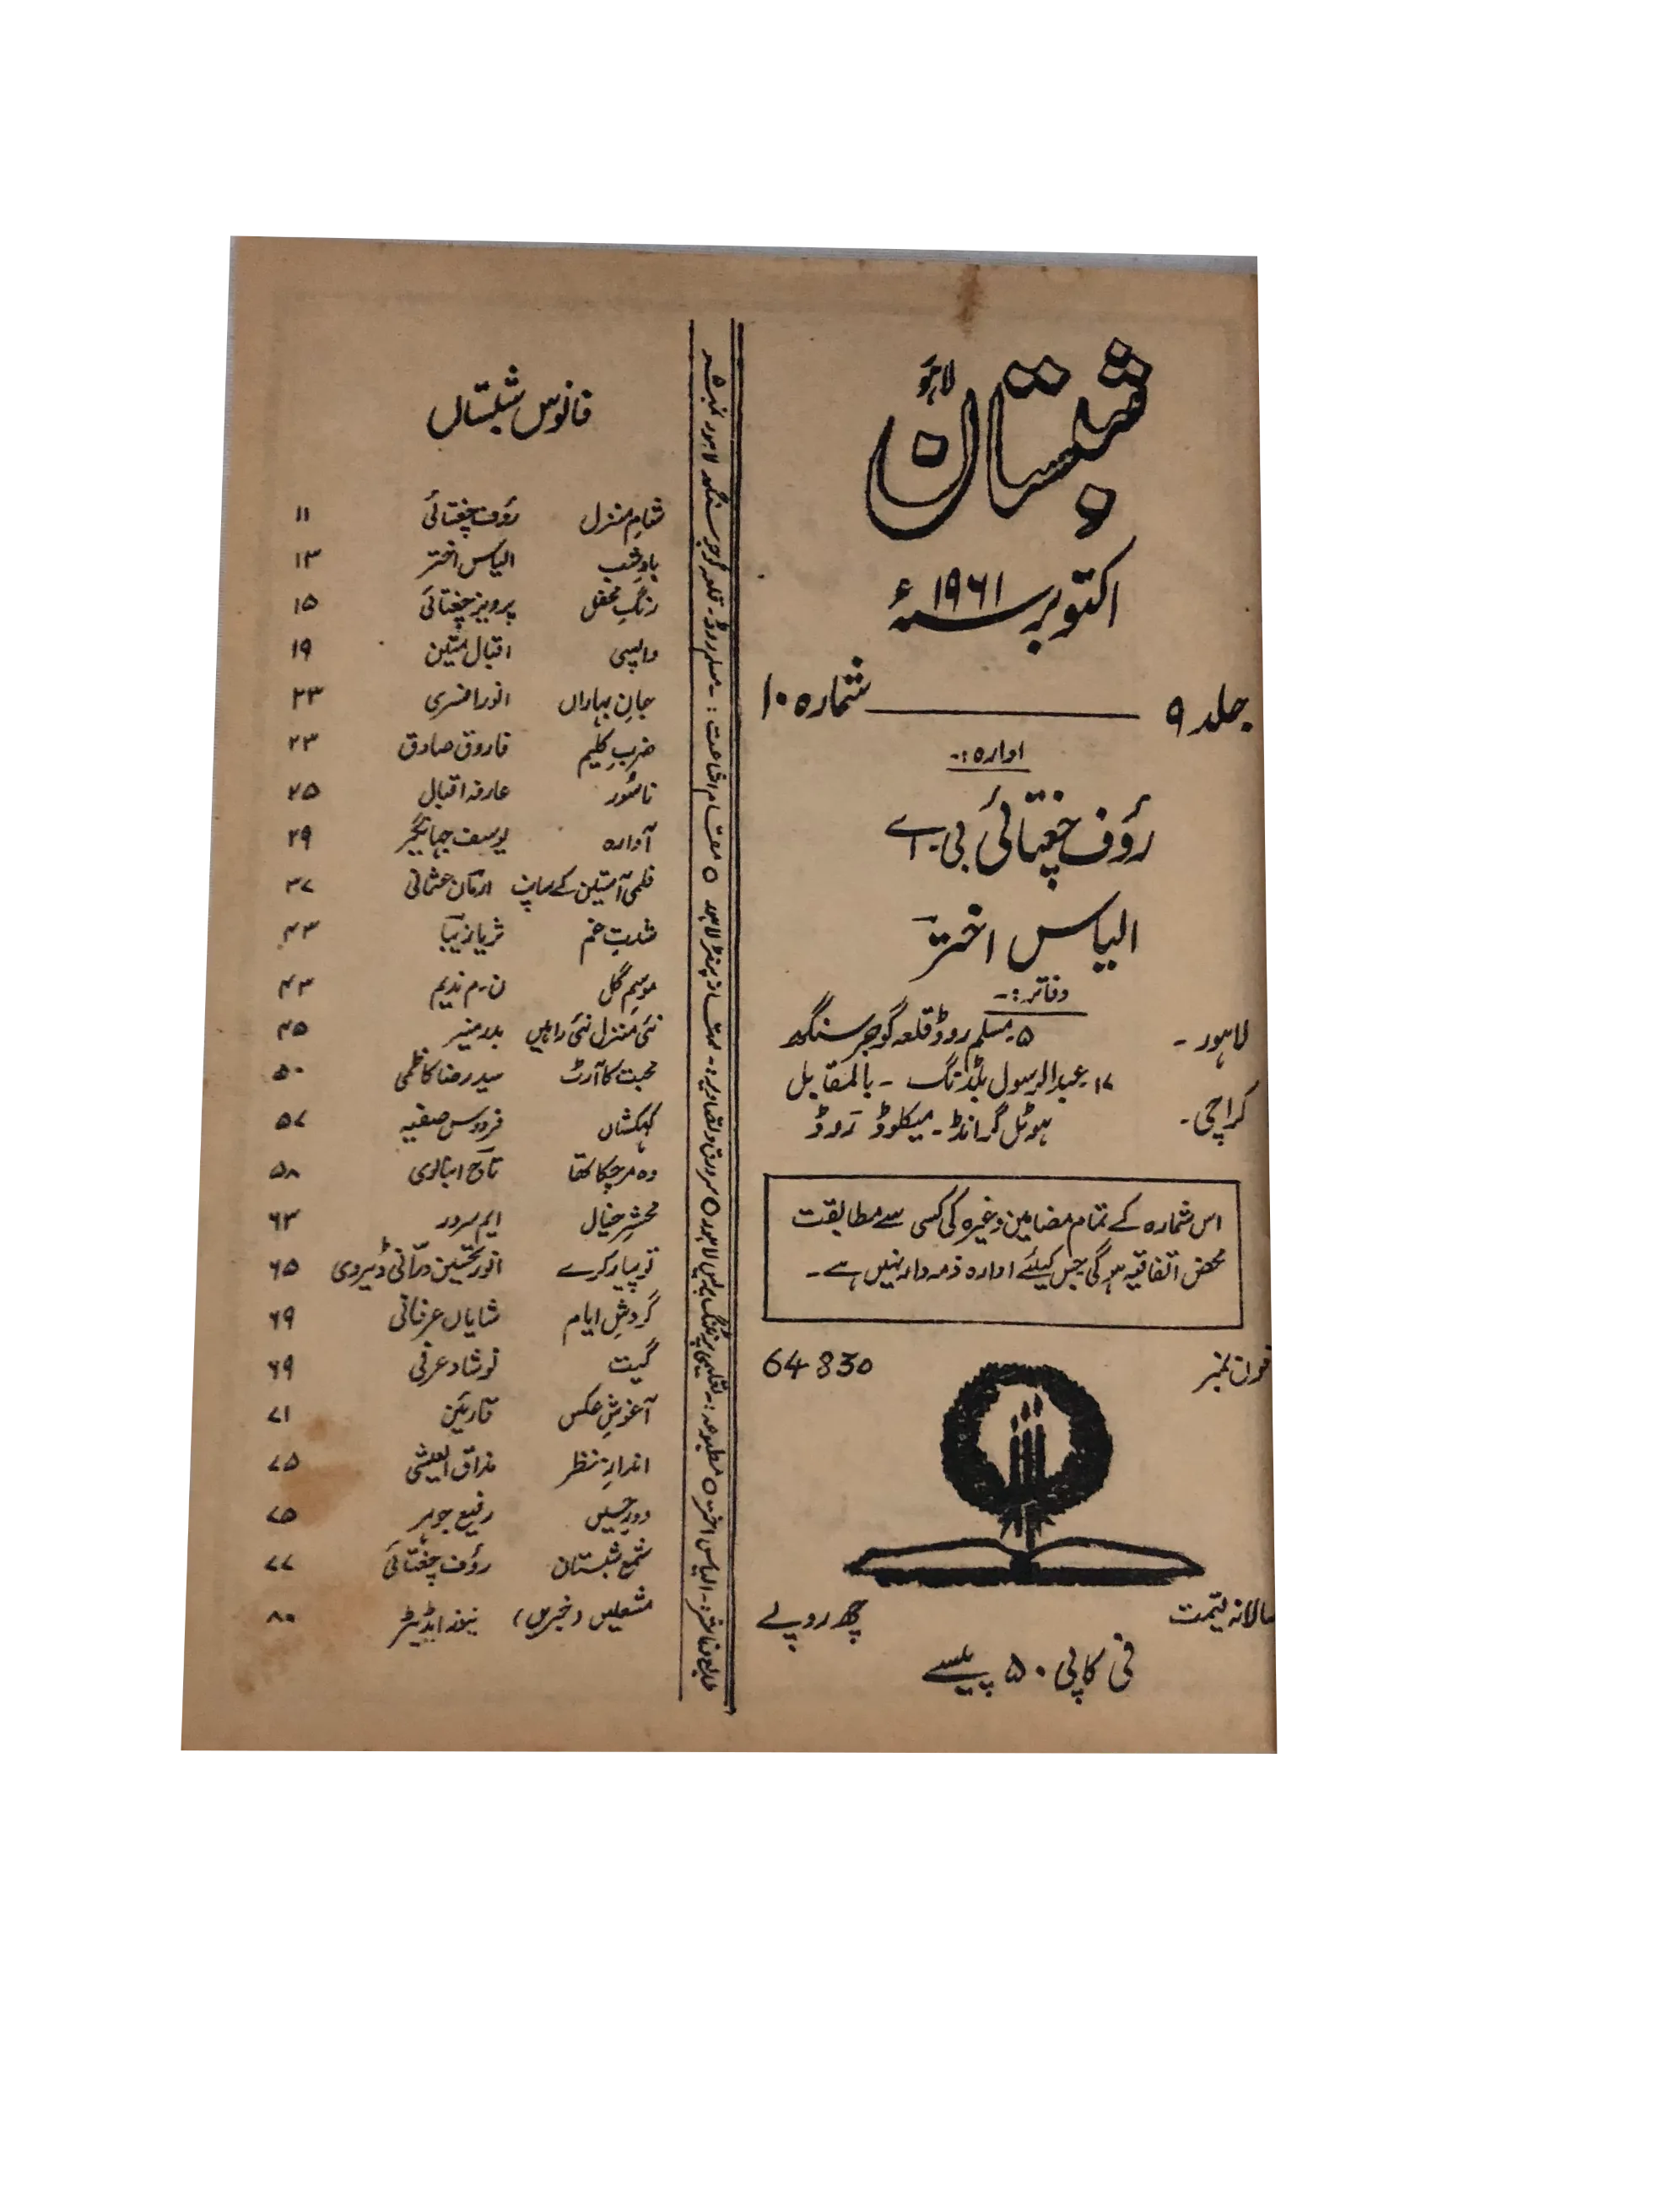 شبستان
لاہور
اکتوبر سنہ ۱۹۶۱ء
جلد ۹ ــــــ شمارہ ۱۰
ادارہ :-
رؤف چغتائی بی۔اے
الیاس اختر
دفاتر :-
لاہور - ۵۔مسلم روڈ قلعہ گوجر سنگھ
کراچی - ۱۷۔عبدالرسول بلڈنگ - بالمقابل
ہوٹل گرانڈ - میکلوڈ روڈ
اس شمارہ کے تمام مضامین وغیرہ کی کسی سے مطابقت
محض اتفاقیہ ہوگی جس کیلئے ادارہ ذمہ دار نہیں ہے -
فون نمبر 64830
سالانہ قیمت چھ روپے
فی کاپی ۵۰ پیسے
طابع و ناشر :- الیاس اختر ○ مطبوعہ :- تعلیمی پرنٹنگ پریس لاہور ○ سرورق و تصاویر :- ممتاز پرنٹرز لاہور ○ مقام اشاعت :- ۵ مسلم روڈ - قلعہ گوجر سنگھ لاہور نمبر ۵
فانوس شبستاں
شام منزل رؤف چغتائی ۱۱
یادِ شب الیاس اختر ۱۳
رنگِ محفل پرویز چغتائی ۱۵
واپسی اقبال متین ۱۹
جانِ بہاراں انور افسری ۲۳
ضربِ کلیم فاروق صادق ۲۳
ناسُور عارفہ اقبال ۲۵
آوارہ یوسف جہانگیر ۲۹
فلمی آستین کے سانپ ارمان عثمانی ۳۷
شدتِ غم ثریا زیبا ۴۳
موسمِ گل ن۔م ندیم ۴۳
نئی منزل نئی راہیں بدر منیر ۴۵
محبت کا آرٹ سید رضا کاظمی ۵۰
کہکشاں فردوس صفیہ ۵۷
وہ مر چکا تھا تاج انبالوی ۵۸
محشرِ خیال ایم سرور ۶۳
تو پیار کرے انور تحسین درانی ڈیروی ۶۵
گردشِ ایام شایاں عرفانی ۶۹
گیت نوشاد عرفی ۶۹
آغوشِ عکس قارئین ۷۱
اندازِ نظر مذاق العیشی ۷۵
دورِ حسیں رفیع جوہر ۷۵
شمع شبستان رؤف چغتائی ۷۷
مشعلیں (خبریں) نیوز ایڈیٹر ۸۰